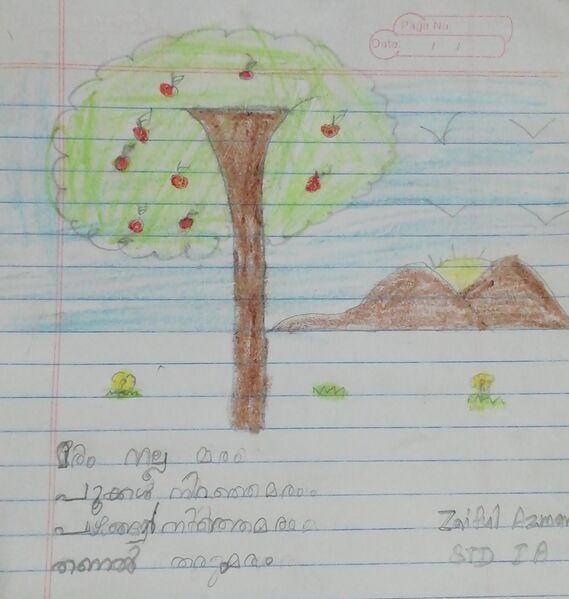 Page No.
Date: / /
മരം നല്ല മരം
പൂക്കൾ നിറഞ്ഞമരം
പഴങ്ങൾ നിറഞ്ഞമരം
തണൽ തരുംമരം
Azman
STD I A